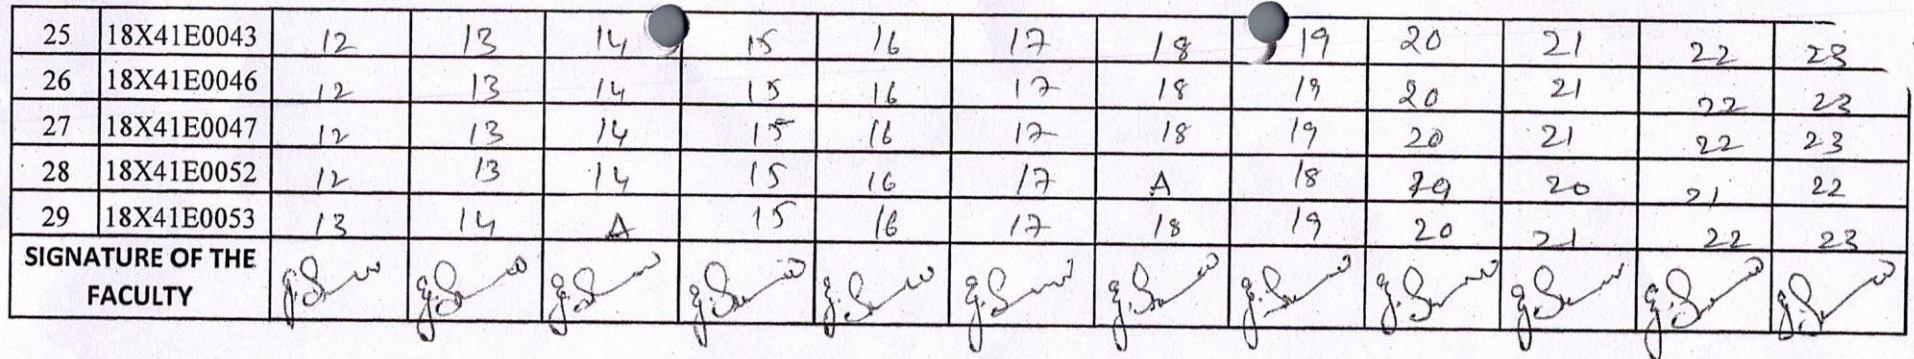 25 18X41E0043 12 13 14 15 16 17 18 19 20 21 22 23
26 18X41E0046 12 13 14 15 16 17 18 19 20 21 22 23
27 18X41E0047 12 13 14 15 16 17 18 19 20 21 22 23
28 18X41E0052 12 13 14 15 16 17 A 18 19 20 21 22
29 18X41E0053 13 14 A 15 16 17 18 19 20 21 22 23
SIGNATURE OF THE
FACULTY